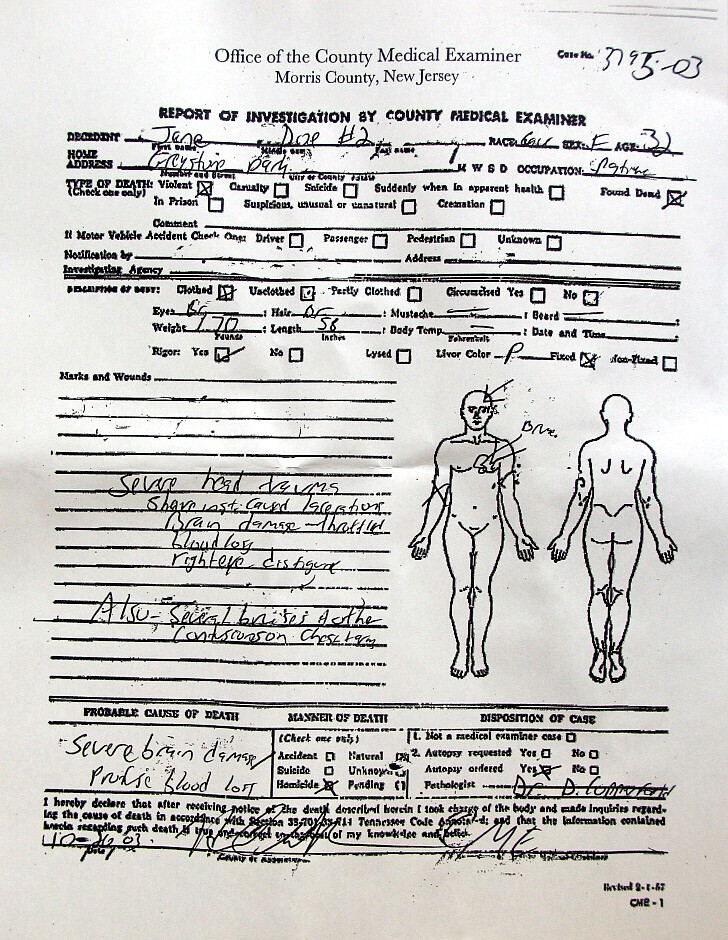 Office of the County Medical Examiner
Morris County, New Jersey
Case No. 3795-03
REPORT OF INVESTIGATION BY COUNTY MEDICAL EXAMINER
DECEDENT Jane Doe #2 RACE SEX F AGE 32
First name Middle name Last name
HOME ADDRESS Greystone Park M W S D OCCUPATION:
Number and Street City or County State
TYPE OF DEATH: Violent Casualty Suicide Suddenly when in apparent health Found Dead
(Check one only) In Prison Suspicious, unusual or unnatural Cremation
Comment
If Motor Vehicle Accident Check One: Driver Passenger Pedestrian Unknown
Notification by Address
Investigating Agency
DESCRIPTION OF BODY: Clothed Unclothed Partly Clothed Circumcised Yes No
Eyes Br : Hair Br : Mustache : Beard
Weight 170 : Length 58 : Body Temp : Date and Time
Pounds Inches Fahrenheit
Rigor: Yes No Lysed Livor Color P Fixed Non-Fixed
Marks and Wounds
Severe head trauma
Sharp inst. caused lacerations
Brain damage
blood loss
right eye disfigure
Also - Several bruises & other
PROBABLE CAUSE OF DEATH MANNER OF DEATH DISPOSITION OF CASE
Severe brain damage
Profuse blood loss
(Check one only)
Accident Natural
Suicide Unknown
Homicide Pending
1. Not a medical examiner case
2. Autopsy requested Yes No
Autopsy ordered Yes No
Pathologist Dr. D.
I hereby declare that after receiving notice of the death described herein I took charge of the body and made inquiries regard-
ing the cause of death in accordance with Section 38-701-38-711 Tennessee Code Annotated; and that the information contained
herein regarding such death is true and correct to the best of my knowledge and belief.
10-26-03 ME
Date County of Appointment
Revised 2-1-67
CME - 1